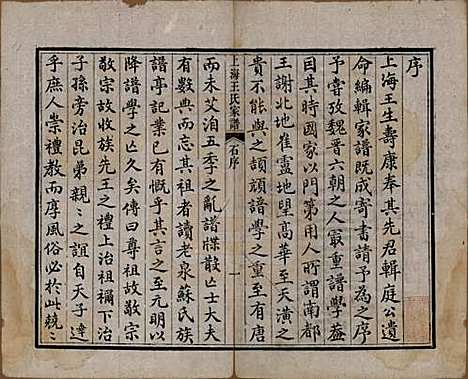 序
上海王生壽康奉其先君輯庭公遺
命編輯家譜既成寄書請予為之序
予嘗攷魏晉六朝之人最重譜學蓋
其時國家以門第用人所謂南都
王謝北地崔盧地望高華至天潢之
貴不能與之頡頏譜學之重至有唐
上海王氏家譜
石序
一
而未艾洎五季之亂譜牒散亡士大夫
有數典而忘其祖者讀老泉蘇氏族
譜亭記業已慨乎其言之至元明以
降譜學之亡久矣傳曰尊祖故敬宗
敬宗故收族先王之禮上治祖禰下治
子孫旁治昆弟親親之誼自天子達
乎庶人崇禮教而厚風俗必於此兢兢